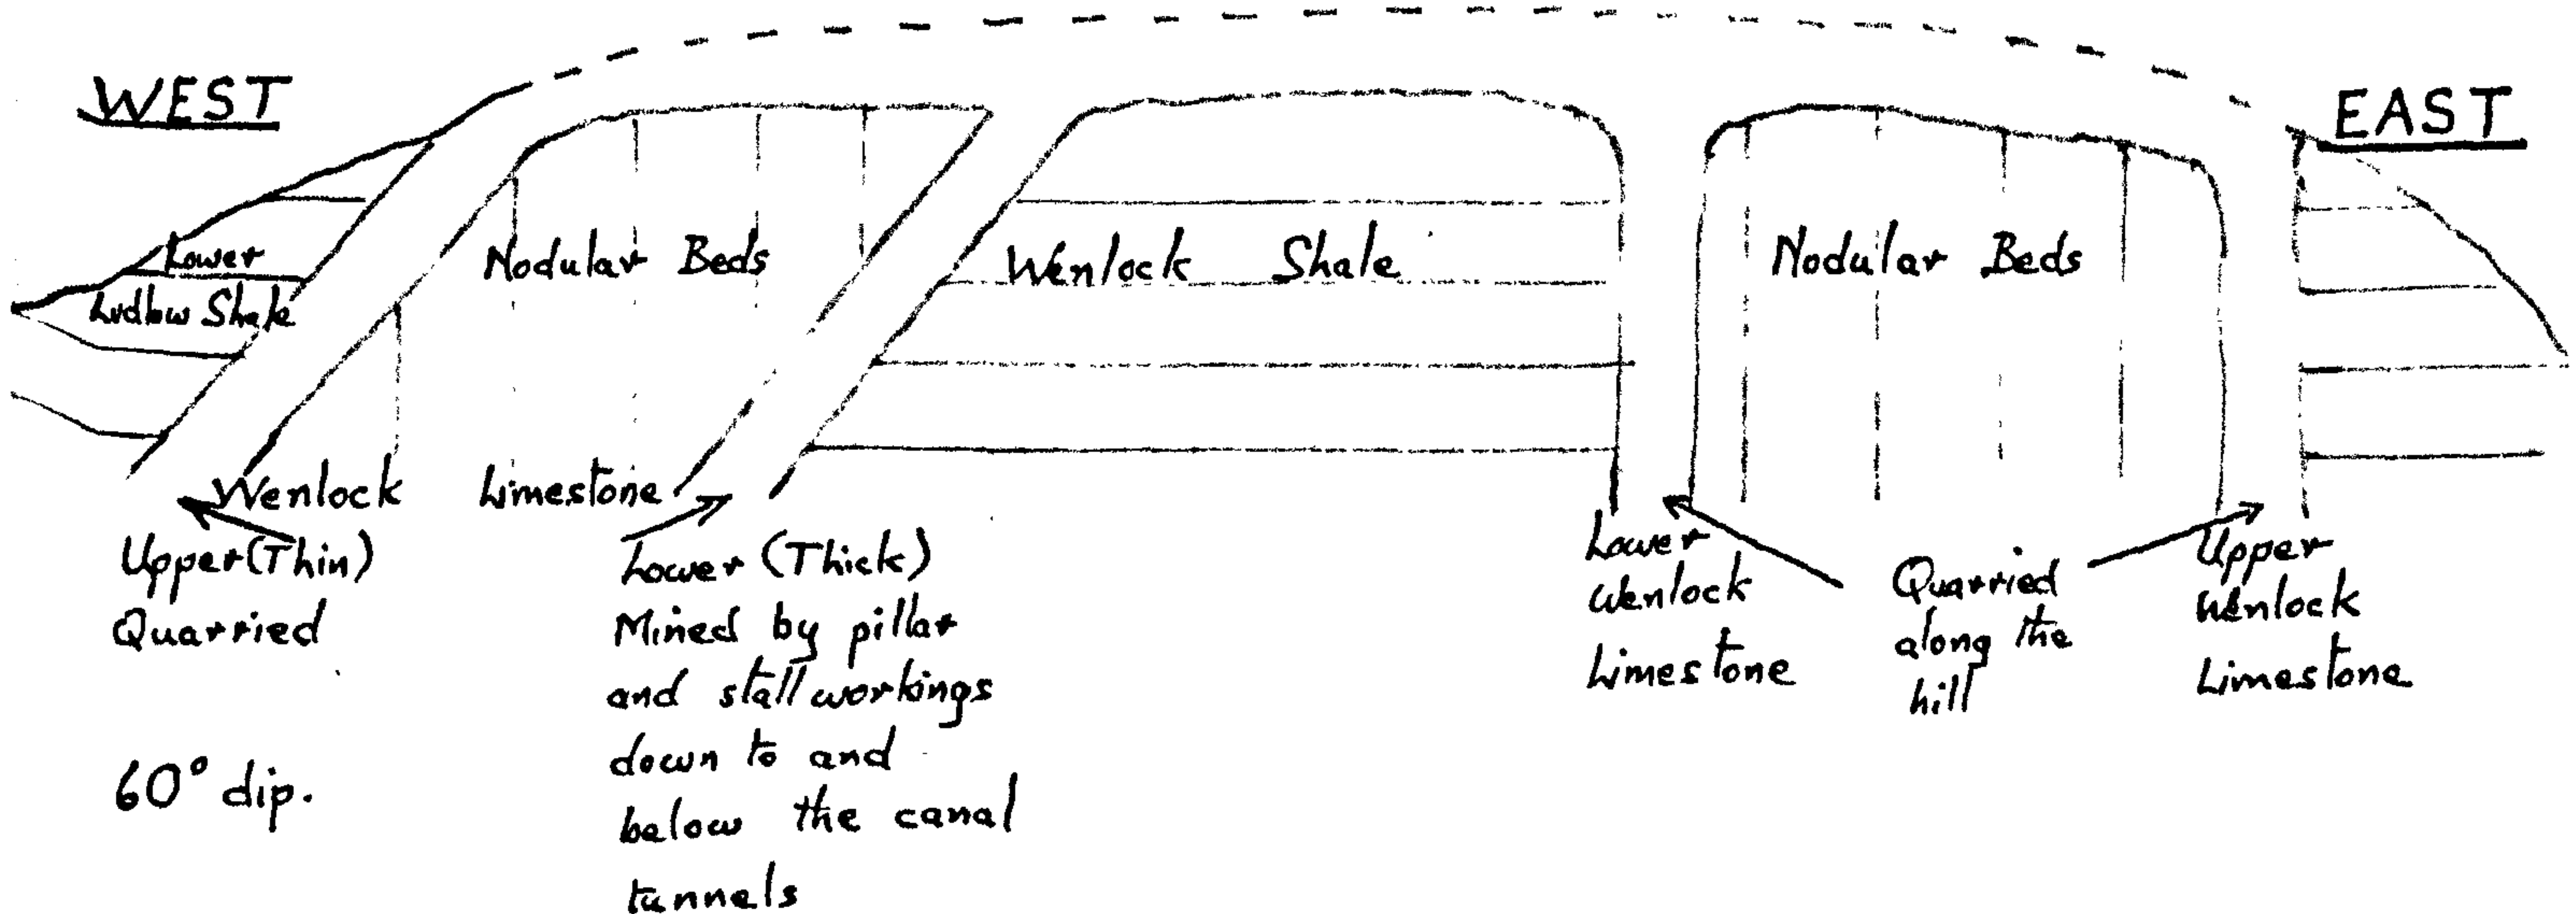 WEST
EAST
Lower
Ludlow Shale
Nodular Beds
Wenlock Shale
Nodular Beds
Wenlock Limestone
Upper (Thin)
Quarried
60° dip.
Lower (Thick)
Mined by pillar
and stall workings
down to and
below the canal
tunnels
Lower
Wenlock
Limestone
Quarried
along the
hill
Upper
Wenlock
Limestone